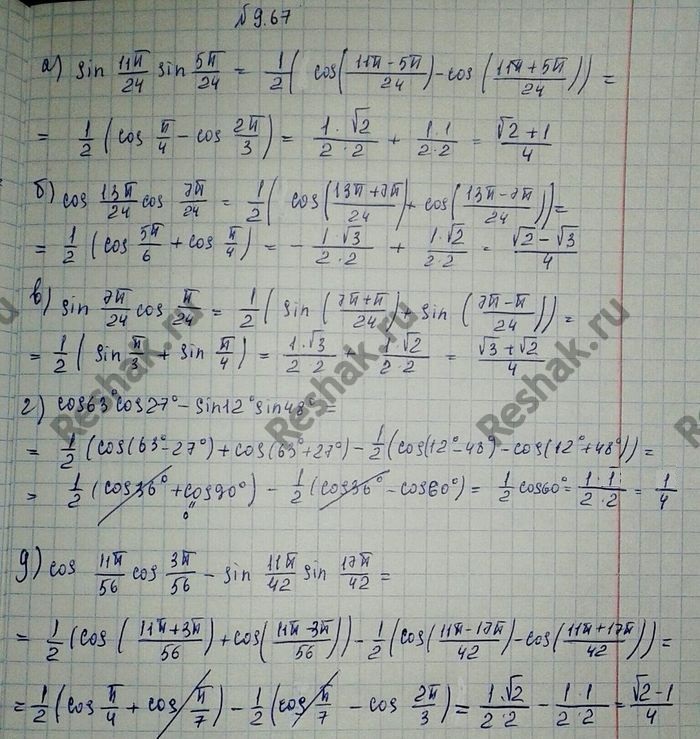 №9.67
а) sin 11π/24 sin 5π/24 = 1/2 ( cos((11π-5π)/24) - cos ((11π+5π)/24)) =
= 1/2 (cos π/4 - cos 2π/3) = (1·√2)/(2·2) + (1·1)/(2·2) = (√2+1)/4
б) cos 13π/24 cos 7π/24 = 1/2 ( cos((13π+7π)/24) + cos((13π-7π)/24)) =
= 1/2 (cos 5π/6 + cos π/4) = - (1·√3)/(2·2) + (1·√2)/(2·2) = (√2-√3)/4
в) sin 7π/24 cos π/24 = 1/2 ( sin ((7π+π)/24) + sin ((7π-π)/24)) =
= 1/2 ( sin π/3 + sin π/4) = (1·√3)/(2·2) + (1·√2)/(2·2) = (√3+√2)/4
г) cos63° cos27° - sin12° sin48° =
= 1/2 (cos(63°-27°) + cos(63°+27°) - 1/2 (cos(12°-48°) - cos(12°+48°)) =
= 1/2 (cos36° + cos90°) - 1/2 (cos36° - cos60°) = 1/2 cos60° = (1·1)/(2·2) = 1/4
0
д) cos 11π/56 cos 3π/56 - sin 11π/42 sin 17π/42 =
= 1/2 (cos ((11π+3π)/56) + cos((11π-3π)/56)) - 1/2 (cos((11π-17π)/42) - cos((11π+17π)/42)) =
= 1/2 (cos π/4 + cos π/7) - 1/2 (cos π/7 - cos 2π/3) = (1·√2)/(2·2) - (1·1)/(2·2) = (√2-1)/4
Reshak.ru
Reshak.ru